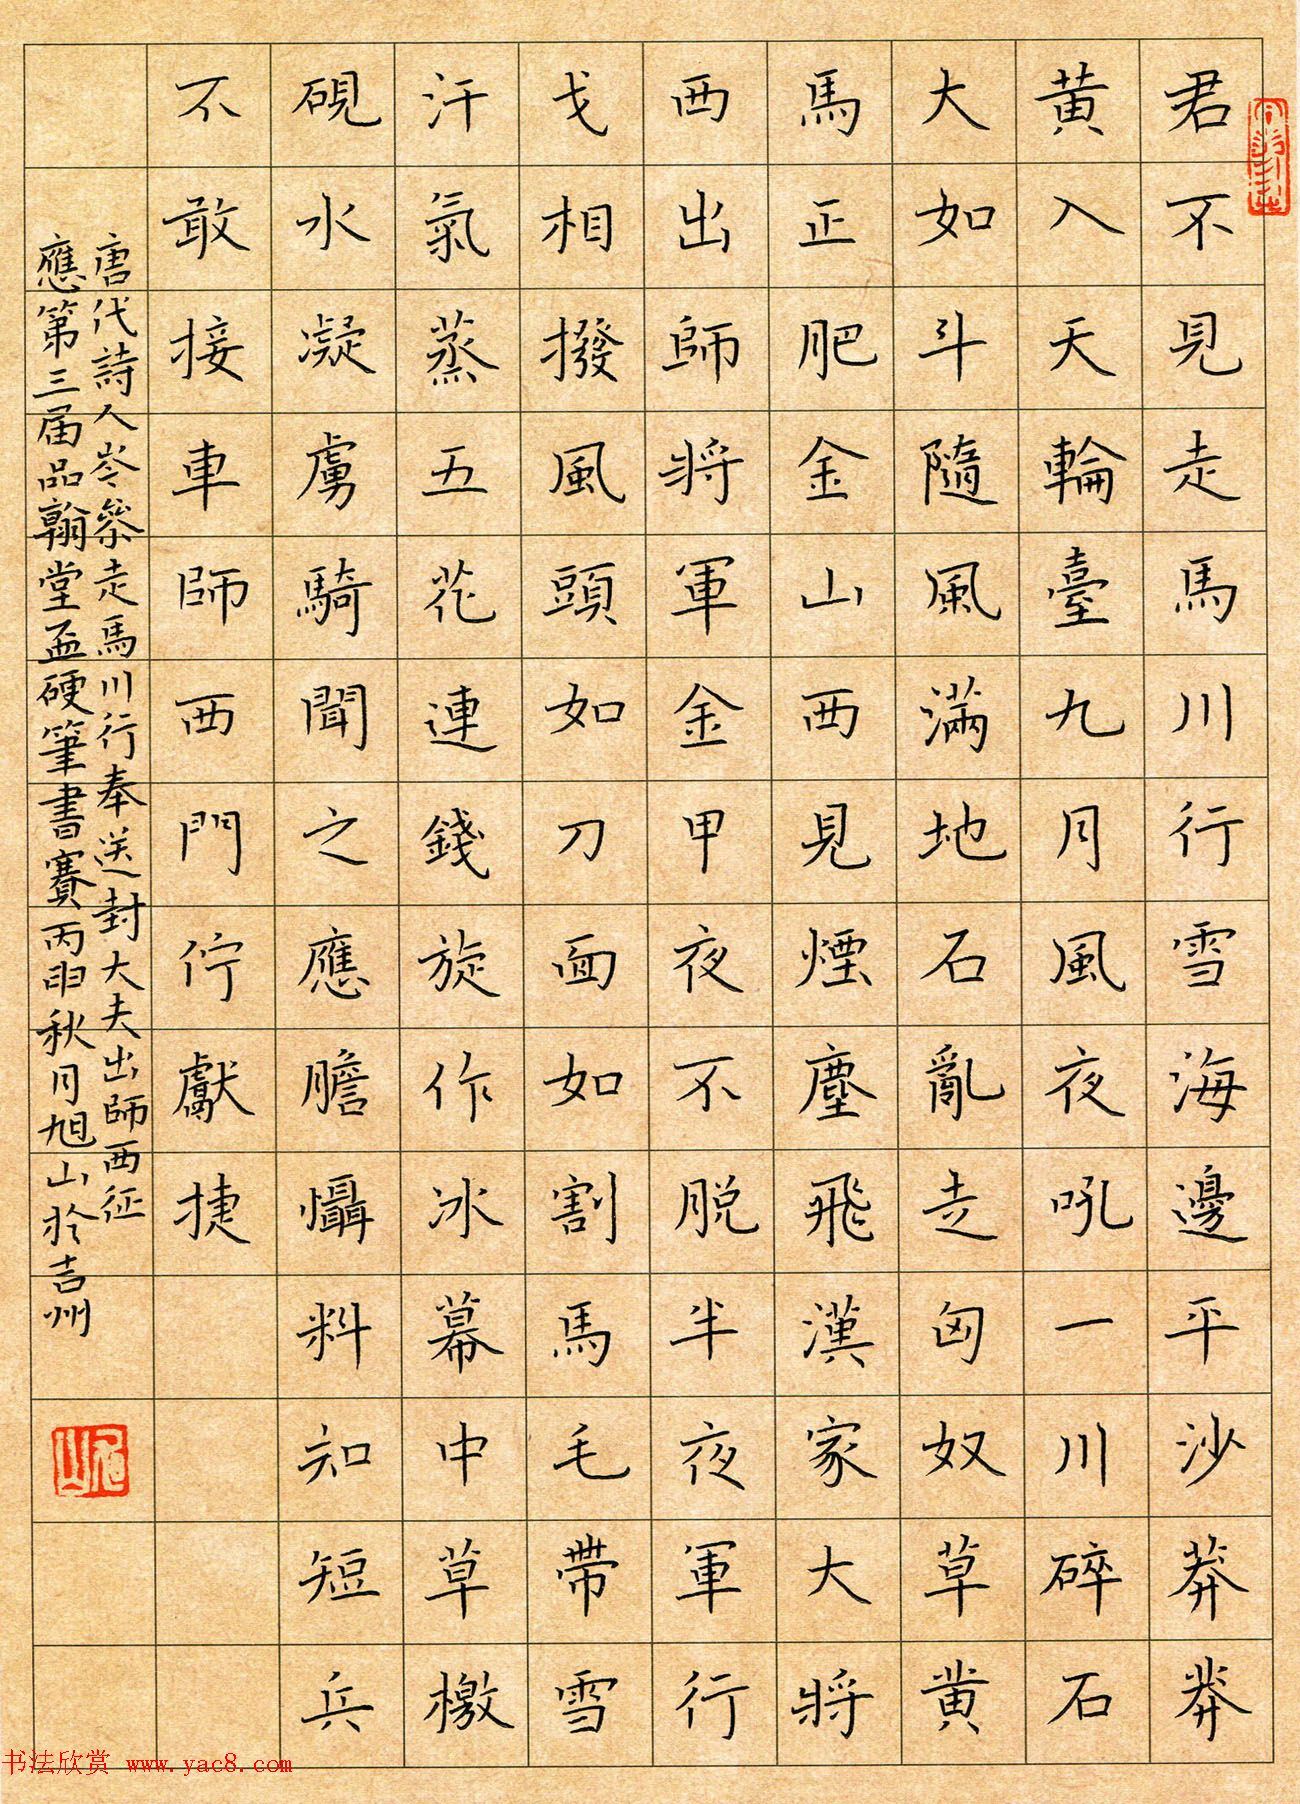 君不見走馬川行雪海邊平沙莽莽
黄入天輪臺九月風夜吼一川碎石
大如斗隨風滿地石亂走匈奴草黄
馬正肥金山西見煙塵飛漢家大將
西出師將軍金甲夜不脱半夜軍行
戈相撥風頭如刀面如割馬毛帶雪
汗氣蒸五花連錢旋作冰幕中草檄
硯水凝虜騎聞之應膽懾料知短兵
不敢接車師西門佇獻捷
唐代詩人岑參走馬川行奉送封大夫出師西征
應第三届品翰堂盃硬筆書賽丙申秋月旭山於吉州
书法欣赏 www.yac8.com